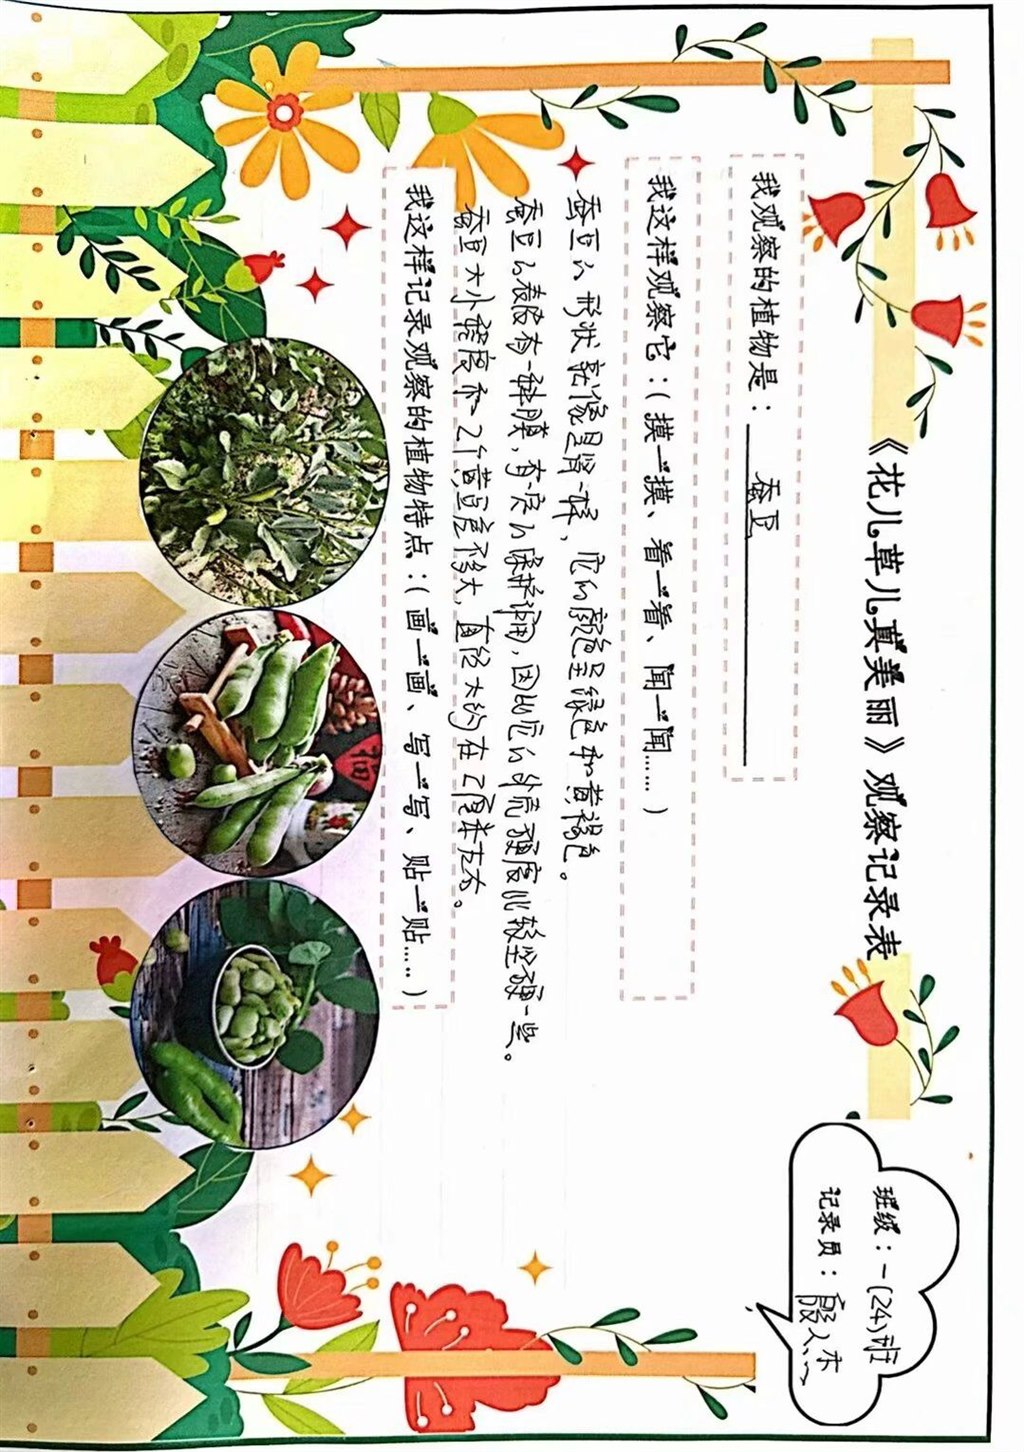 《花儿草儿真美丽》观察记录表
班级：一(24)班
记录员：
我观察的植物是： 蚕豆
我这样观察它：（摸一摸、看一看、闻一闻……）
蚕豆的形状就像是肾一样，它的颜色呈绿色和黄褐色。
蚕豆的表皮有一种膜，有它的保护作用，因此它的外壳硬度比较坚硬一些。
蚕豆大小程度和2个黄豆差不多大，直径大约在2厘米左右。
我这样记录观察的植物特点：（画一画、写一写、贴一贴……）